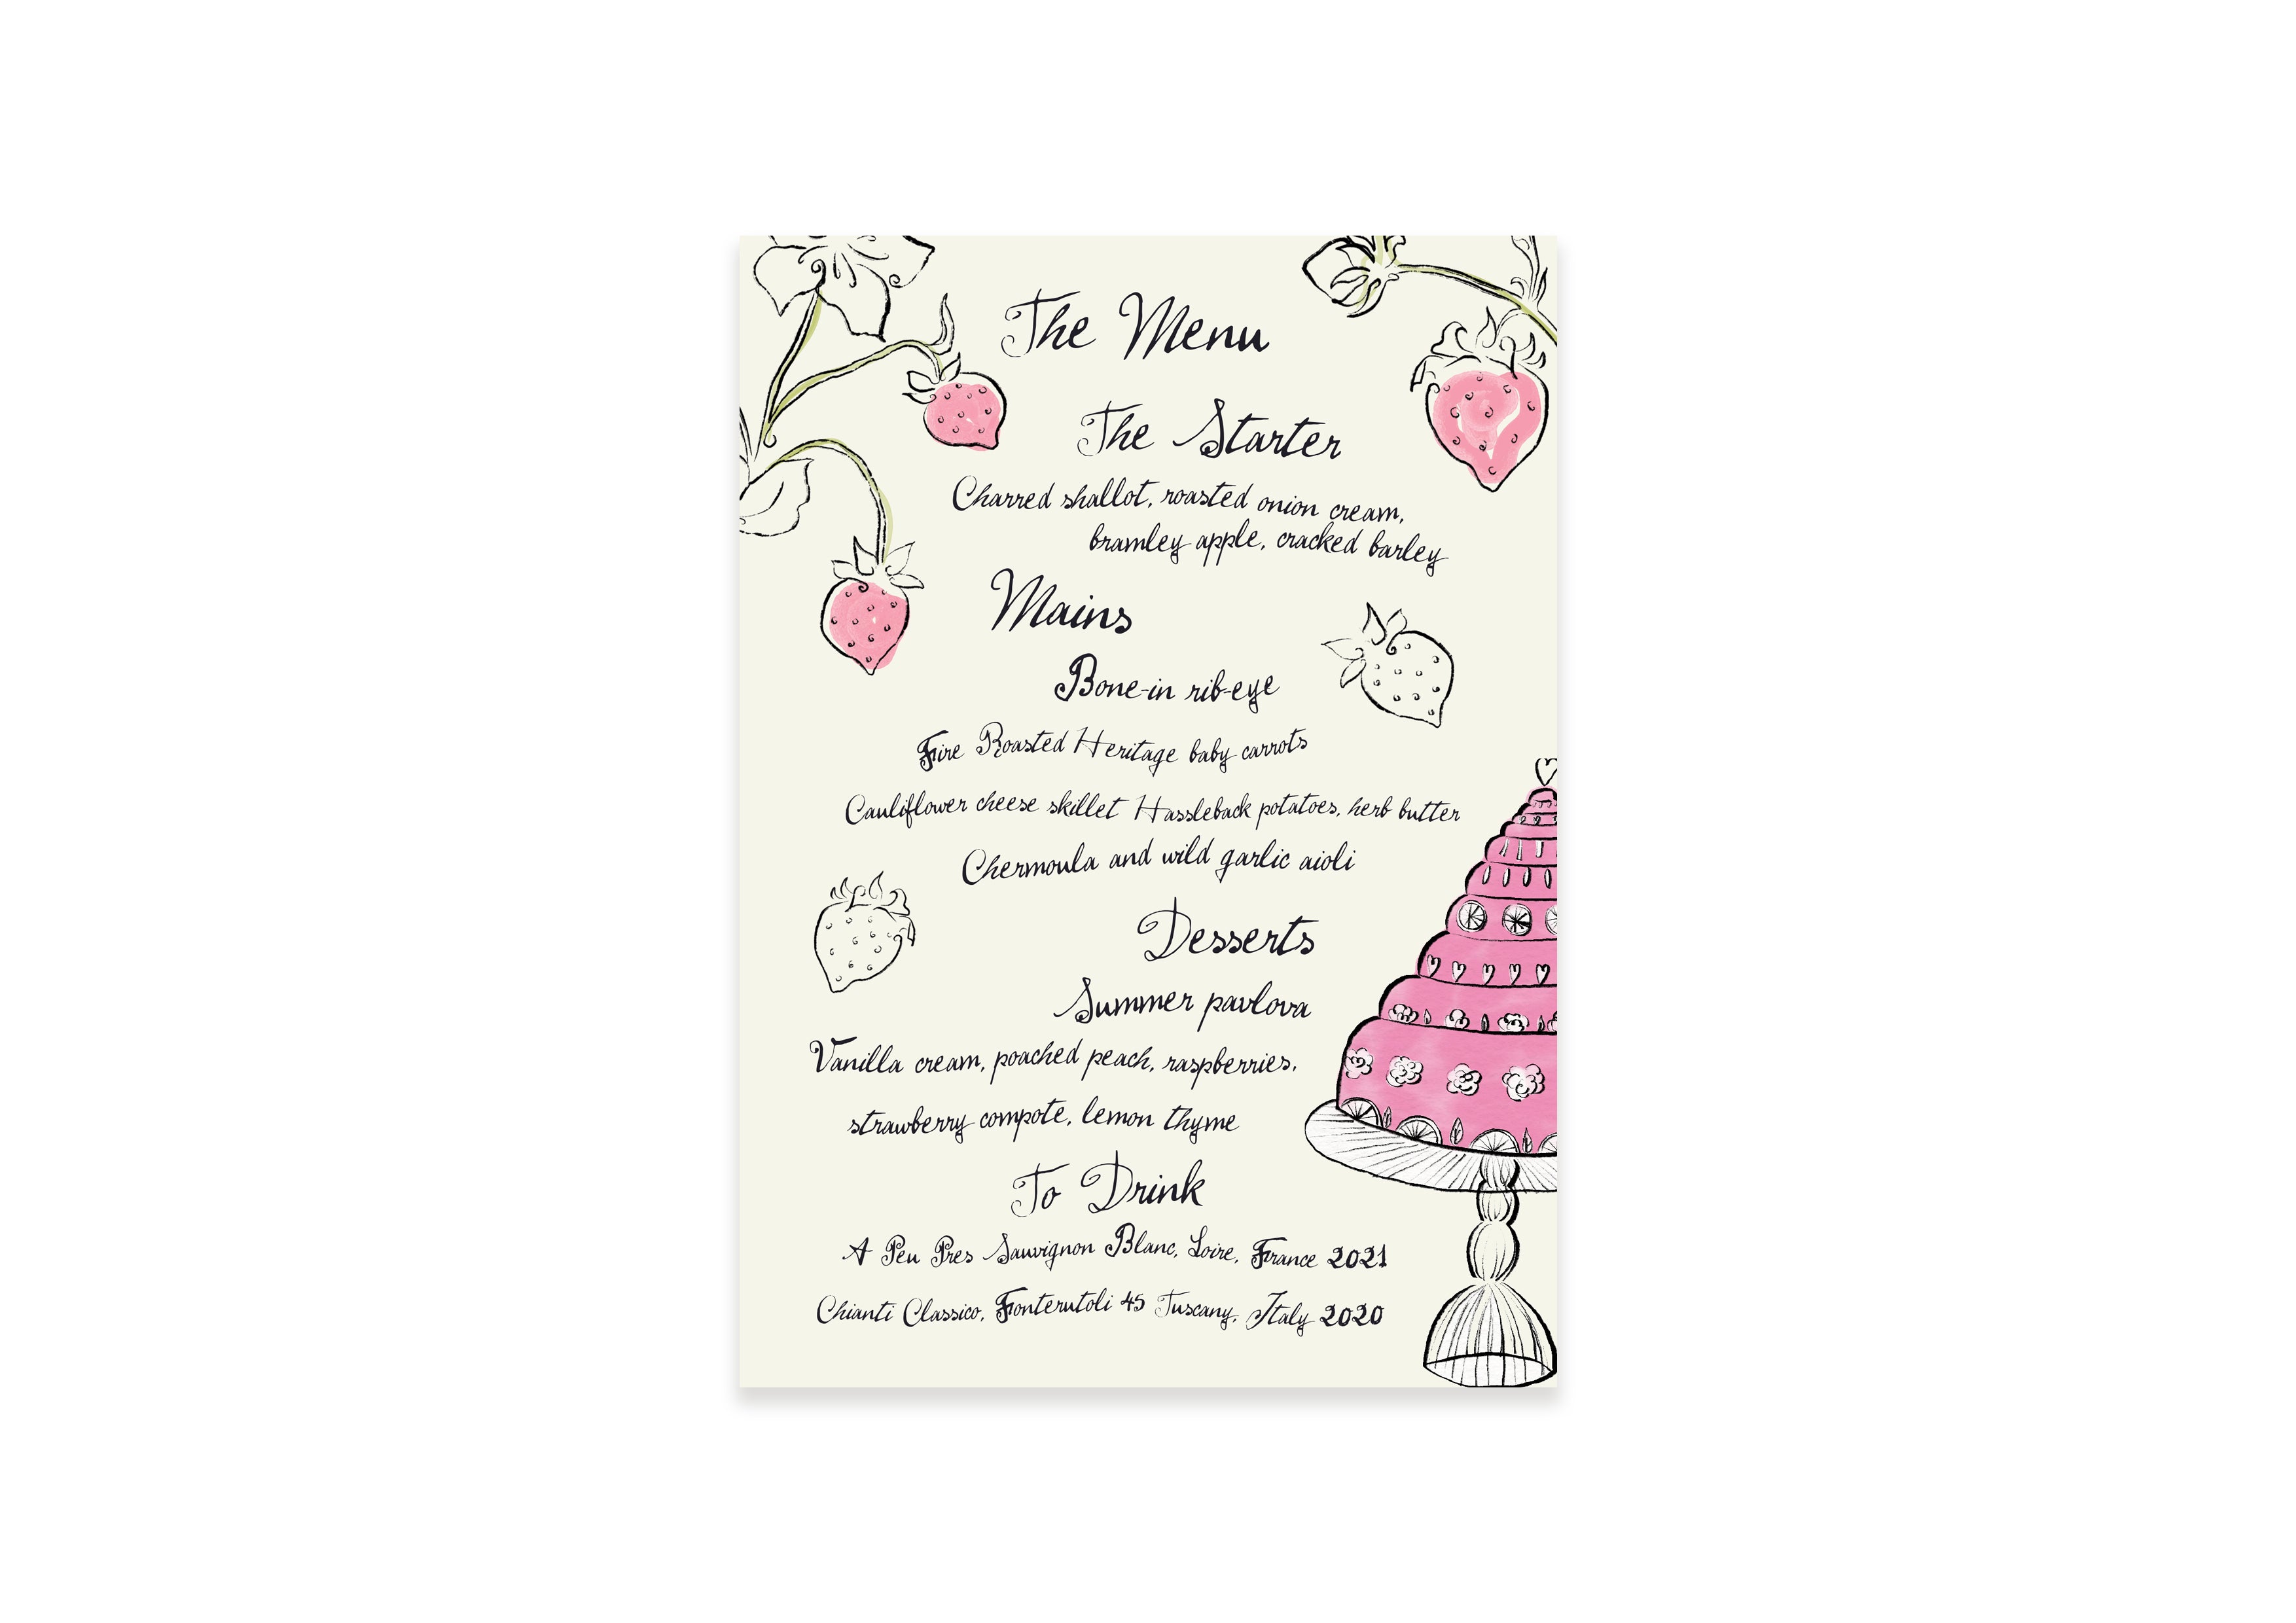 The Menu
The Starter
Charred shallot, roasted onion cream,
bramley apple, cracked barley
Mains
Bone-in rib-eye
Fire Roasted Heritage baby carrots
Cauliflower cheese skillet Hassleback potatoes, herb butter
Chermoula and wild garlic aioli
Desserts
Summer pavlova
Vanilla cream, poached peach, raspberries,
strawberry compote, lemon thyme
To Drink
A Peu Pres Sauvignon Blanc, Loire, France 2021
Chianti Classico, Fonterutoli 45 Tuscany, Italy 2020